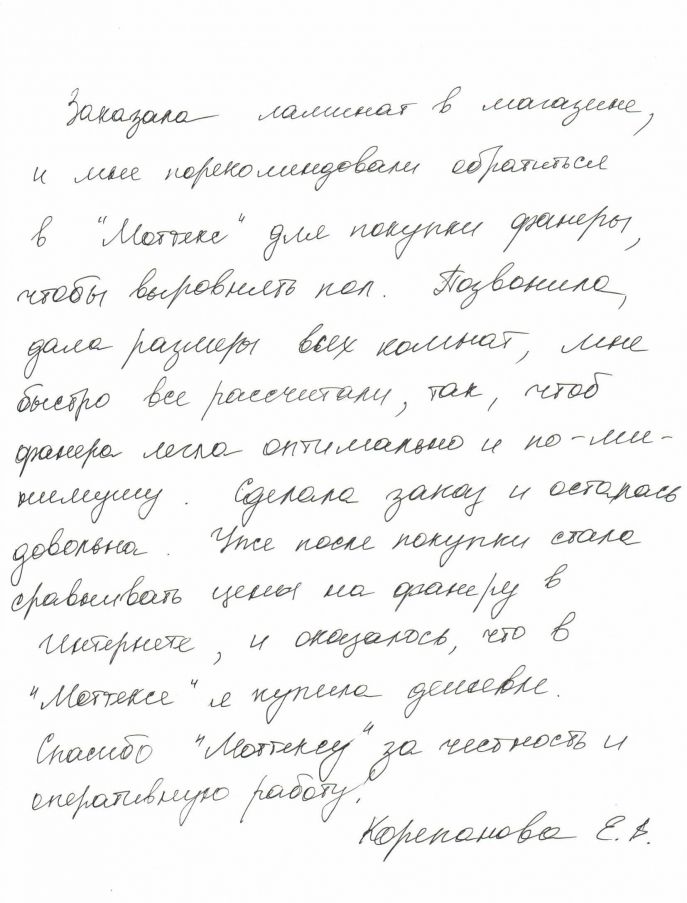 Заказала ламинат в магазине,
и мне порекомендовали обратиться
в "Моттекс" для покупки фанеры,
чтобы выровнять пол. Позвонила,
дала размеры всех комнат, мне
быстро все рассчитали, так, чтоб
фанера легла оптимально и по-ми-
нимуму. Сделала заказ и осталась
довольна. Уже после покупки стала
сравнивать цены на фанеру в
Интернете, и оказалось, что в
"Моттексе" я купила дешевле.
Спасибо "Моттексу" за честность и
оперативную работу!
Корепанова Е. В.